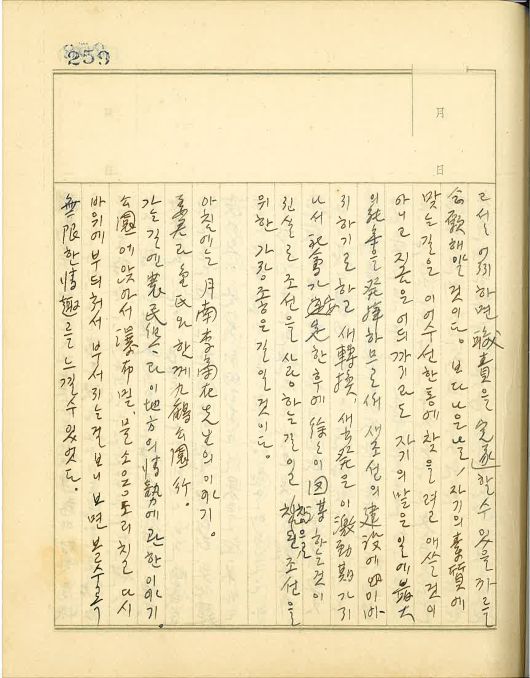 259
月
日
로서는 어찌하면 職責을 完遂할수 있을까를
念願해야 될 것이다. 보다 나은 나날, 자기의 素質에
맞는 길을 이어수선한 통에 찾을려 애쓸것이
아니고 지금은 어디까지라도 자기의 맡은 일에 最大
의 能率을 發揮하므로써 새조선의 建設에 이바
지하기로 하고 새 轉換 새 出發은 이 激動期가 지
나서 社會가 安定한 후에 徐々이 図謀하는것이
진실로 조선을 사랑하는길이요 참으로 조선을
위한 가장 좋은 길일것이다.
아침에는 月南 李商在先生의 이야기.
金氏와 함께 九鶴公園行.
가는길에 農民組合 이 地方의 情勢에 관한 이야기.
公園에 앉아서 瀑布물, 물소리 다시
바위에 부디쳐서 부서지는걸 보니 보면 볼수록
無限한 情趣를 느낄수 있었다.